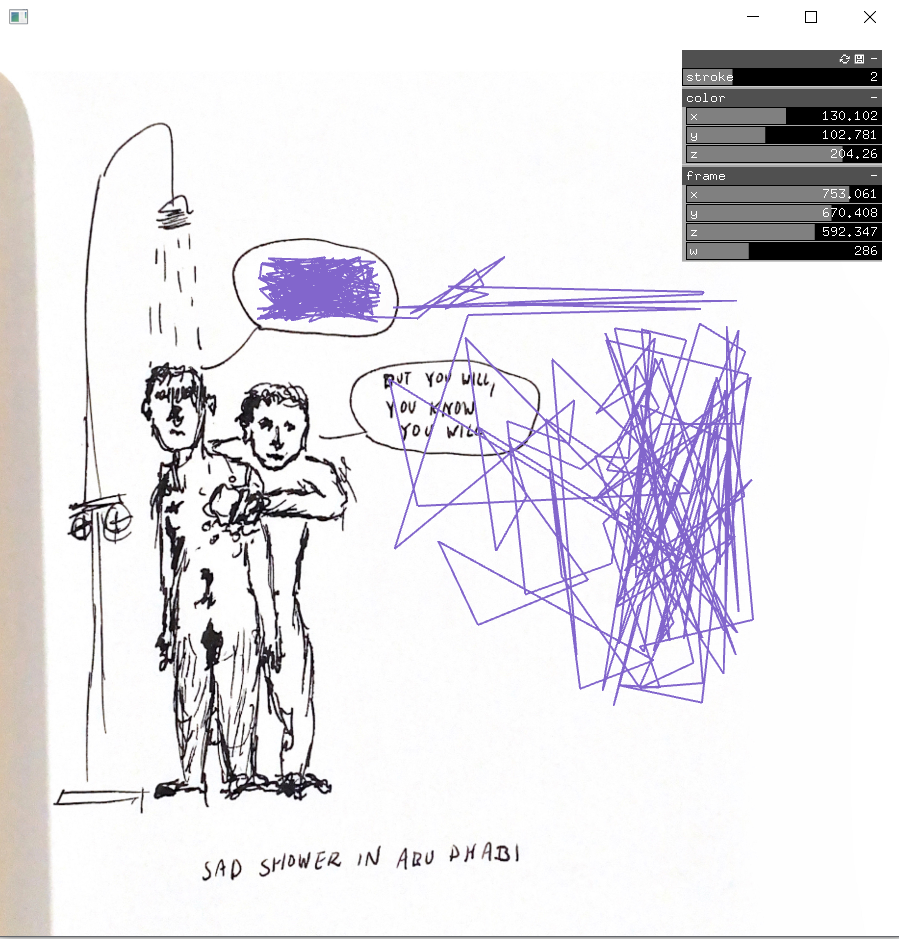 stroke 2
color
x 130.102
y 102.781
z 204.26
frame
x 753.061
y 670.408
z 592.347
w 286
BUT YOU WILL,
YOU KNOW
YOU WILL
SAD SHOWER IN ABU DHABI